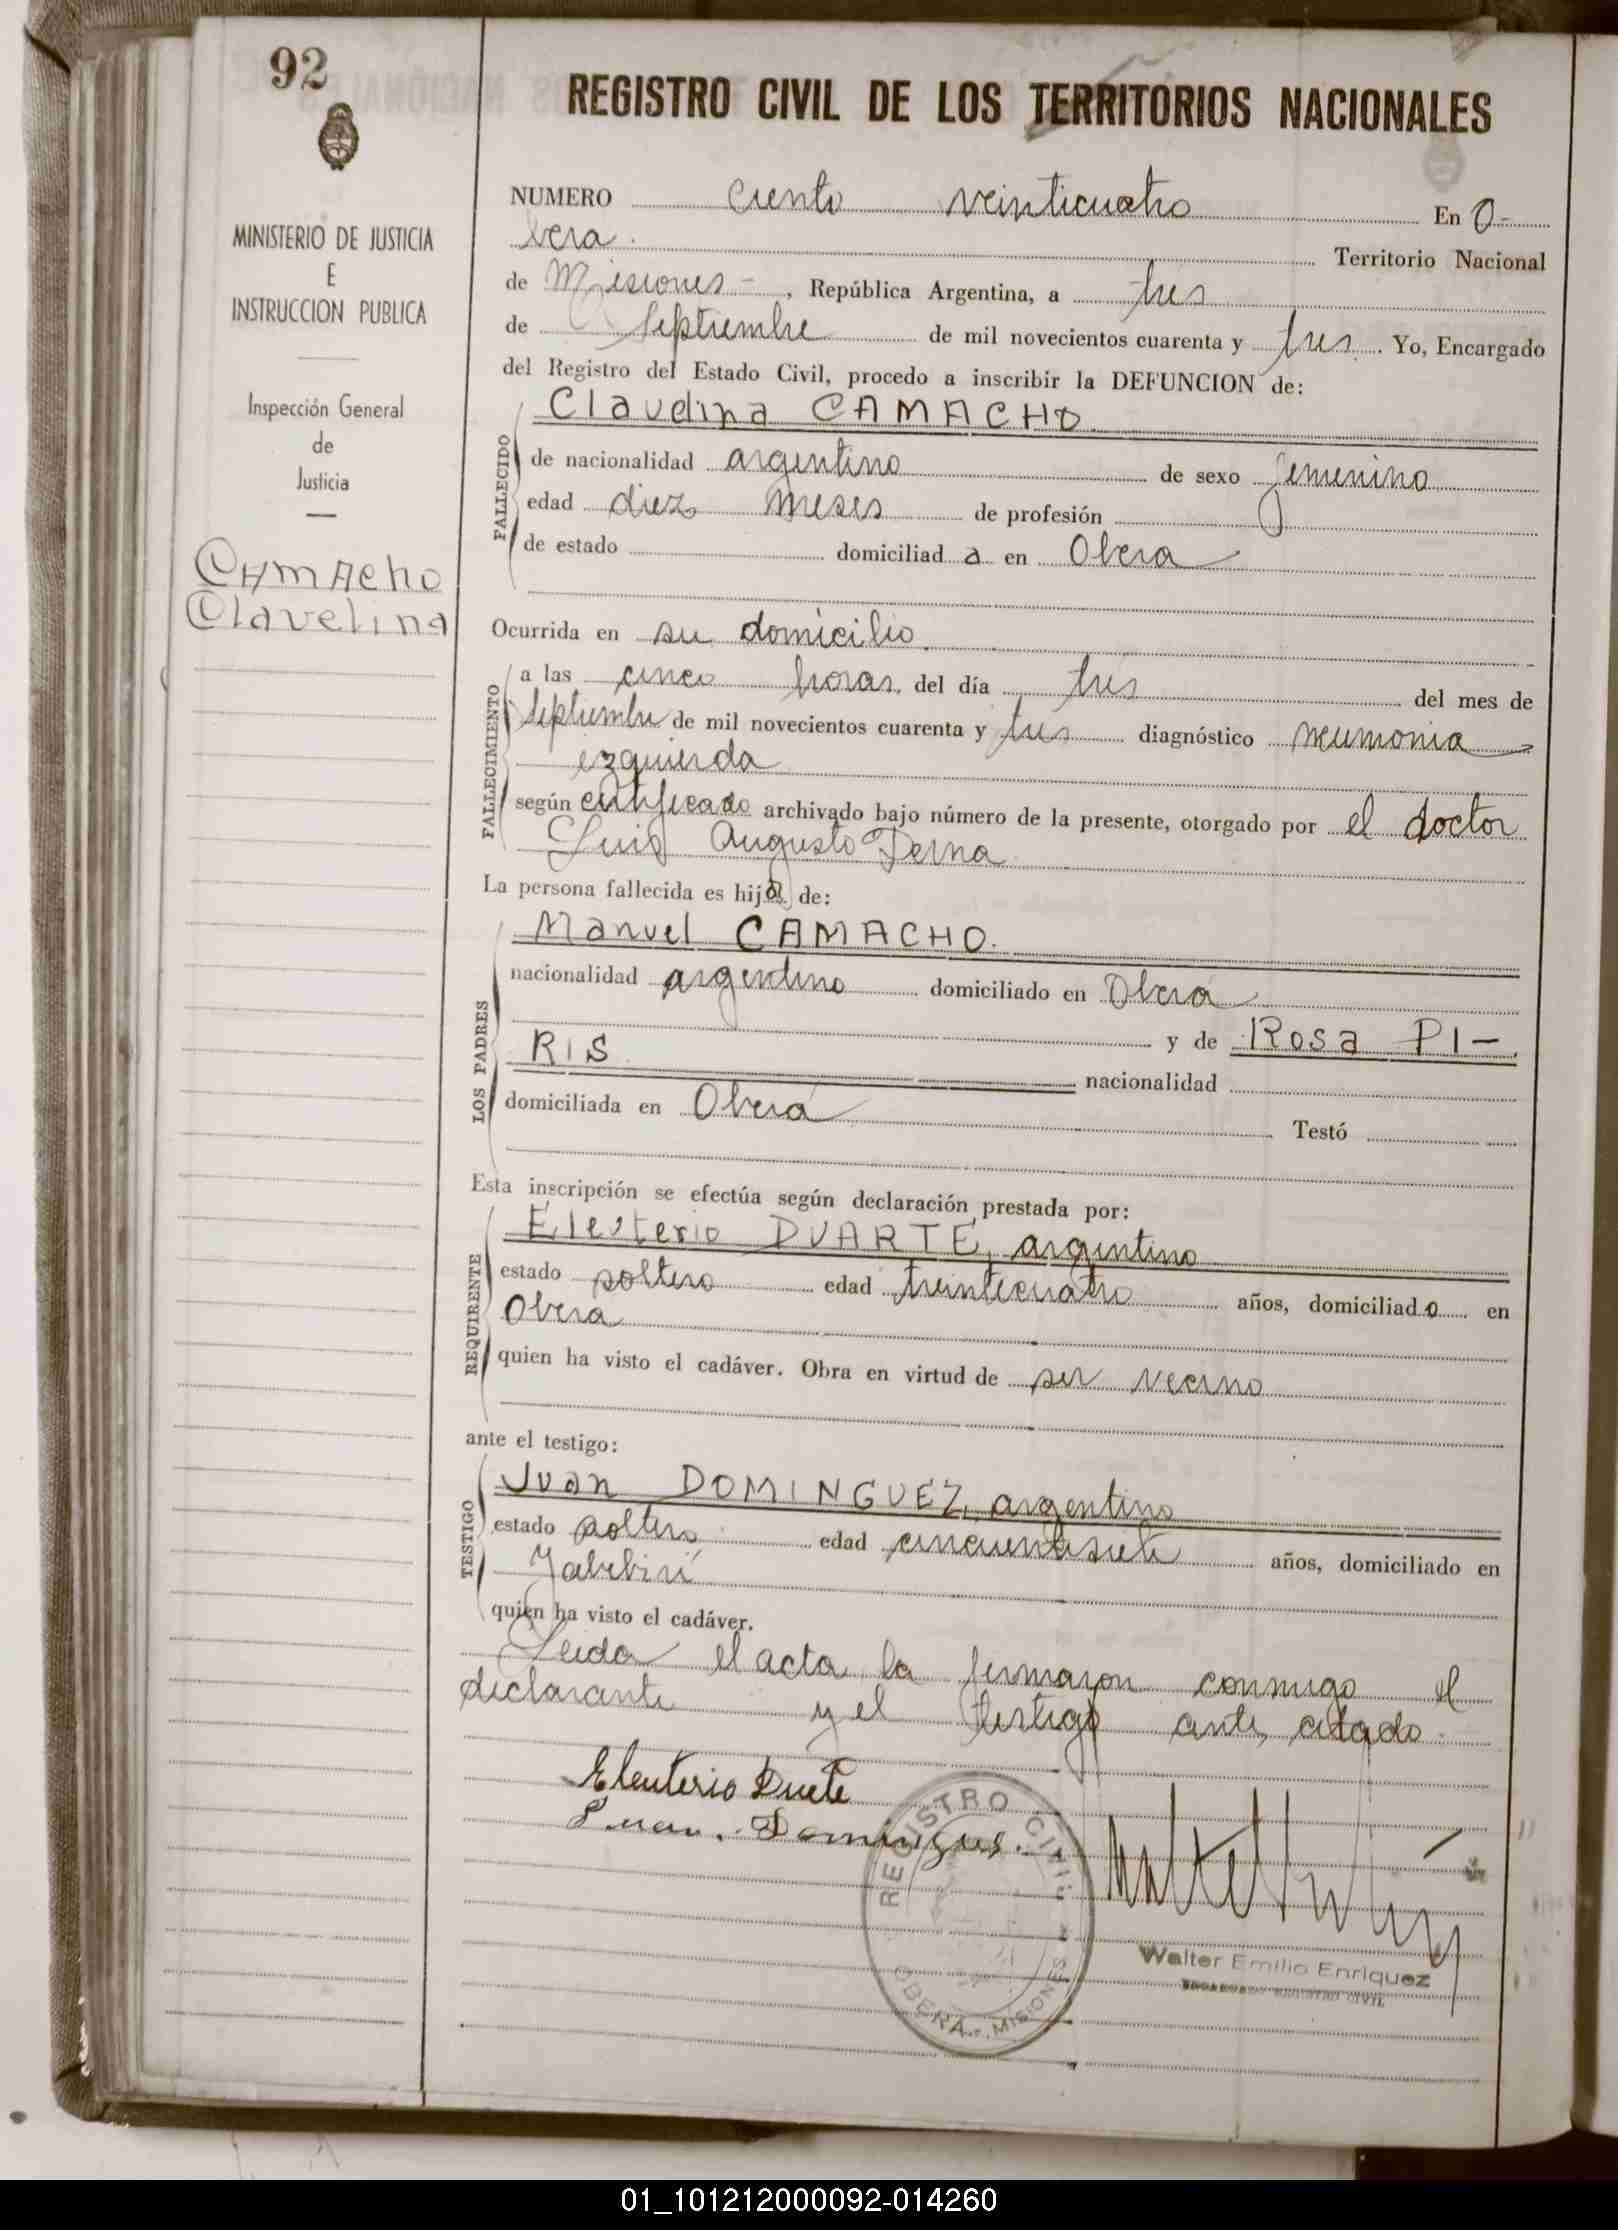 92
REGISTRO CIVIL DE LOS TERRITORIOS NACIONALES
MINISTERIO DE JUSTICIA
E
INSTRUCCION PUBLICA
Inspección General
de
Justicia
Camacho
Clavelina
NUMERO ciento veinticuatro En O-
bera. Territorio Nacional
de Misiones-, República Argentina, a tres
de Septiembre de mil novecientos cuarenta y tres. Yo, Encargado
del Registro del Estado Civil, procedo a inscribir la DEFUNCION de:
FALLECIDO
Claudina CAMACHO.
de nacionalidad argentino de sexo femenino
edad diez meses de profesión
de estado domiciliad a en Obera
Ocurrida en su domicilio
FALLECIMIENTO
a las cinco horas, del día tres del mes de
Septiembre de mil novecientos cuarenta y tres diagnóstico neumonia
izquierda
según certificado archivado bajo número de la presente, otorgado por el doctor
Luis Augusto Derna
La persona fallecida es hija de:
LOS PADRES
Manuel CAMACHO.
nacionalidad argentino domiciliado en Oberá
y de Rosa PI-
RIS nacionalidad
domiciliada en Oberá
Testó
Esta inscripción se efectúa según declaración prestada por:
REQUIRENTE
Eleuterio DUARTE, argentino
estado soltero edad treinticuatro años, domiciliado en
Obera
quien ha visto el cadáver. Obra en virtud de ser vecino
ante el testigo:
TESTIGO
Juan DOMINGUEZ, argentino
estado soltero edad cincuentisiete años, domiciliado en
Yabebirí
quien ha visto el cadáver.
Leida el acta la firmaron conmigo el
declarante y el testigo ante citado.
Eleuterio Duete
Juan. Domingues.
REGISTRO CIVIL
OBERA - MISIONES
Walter Emilio Enriquez
ENCARGADO REGISTRO CIVIL
01_101212000092-014260